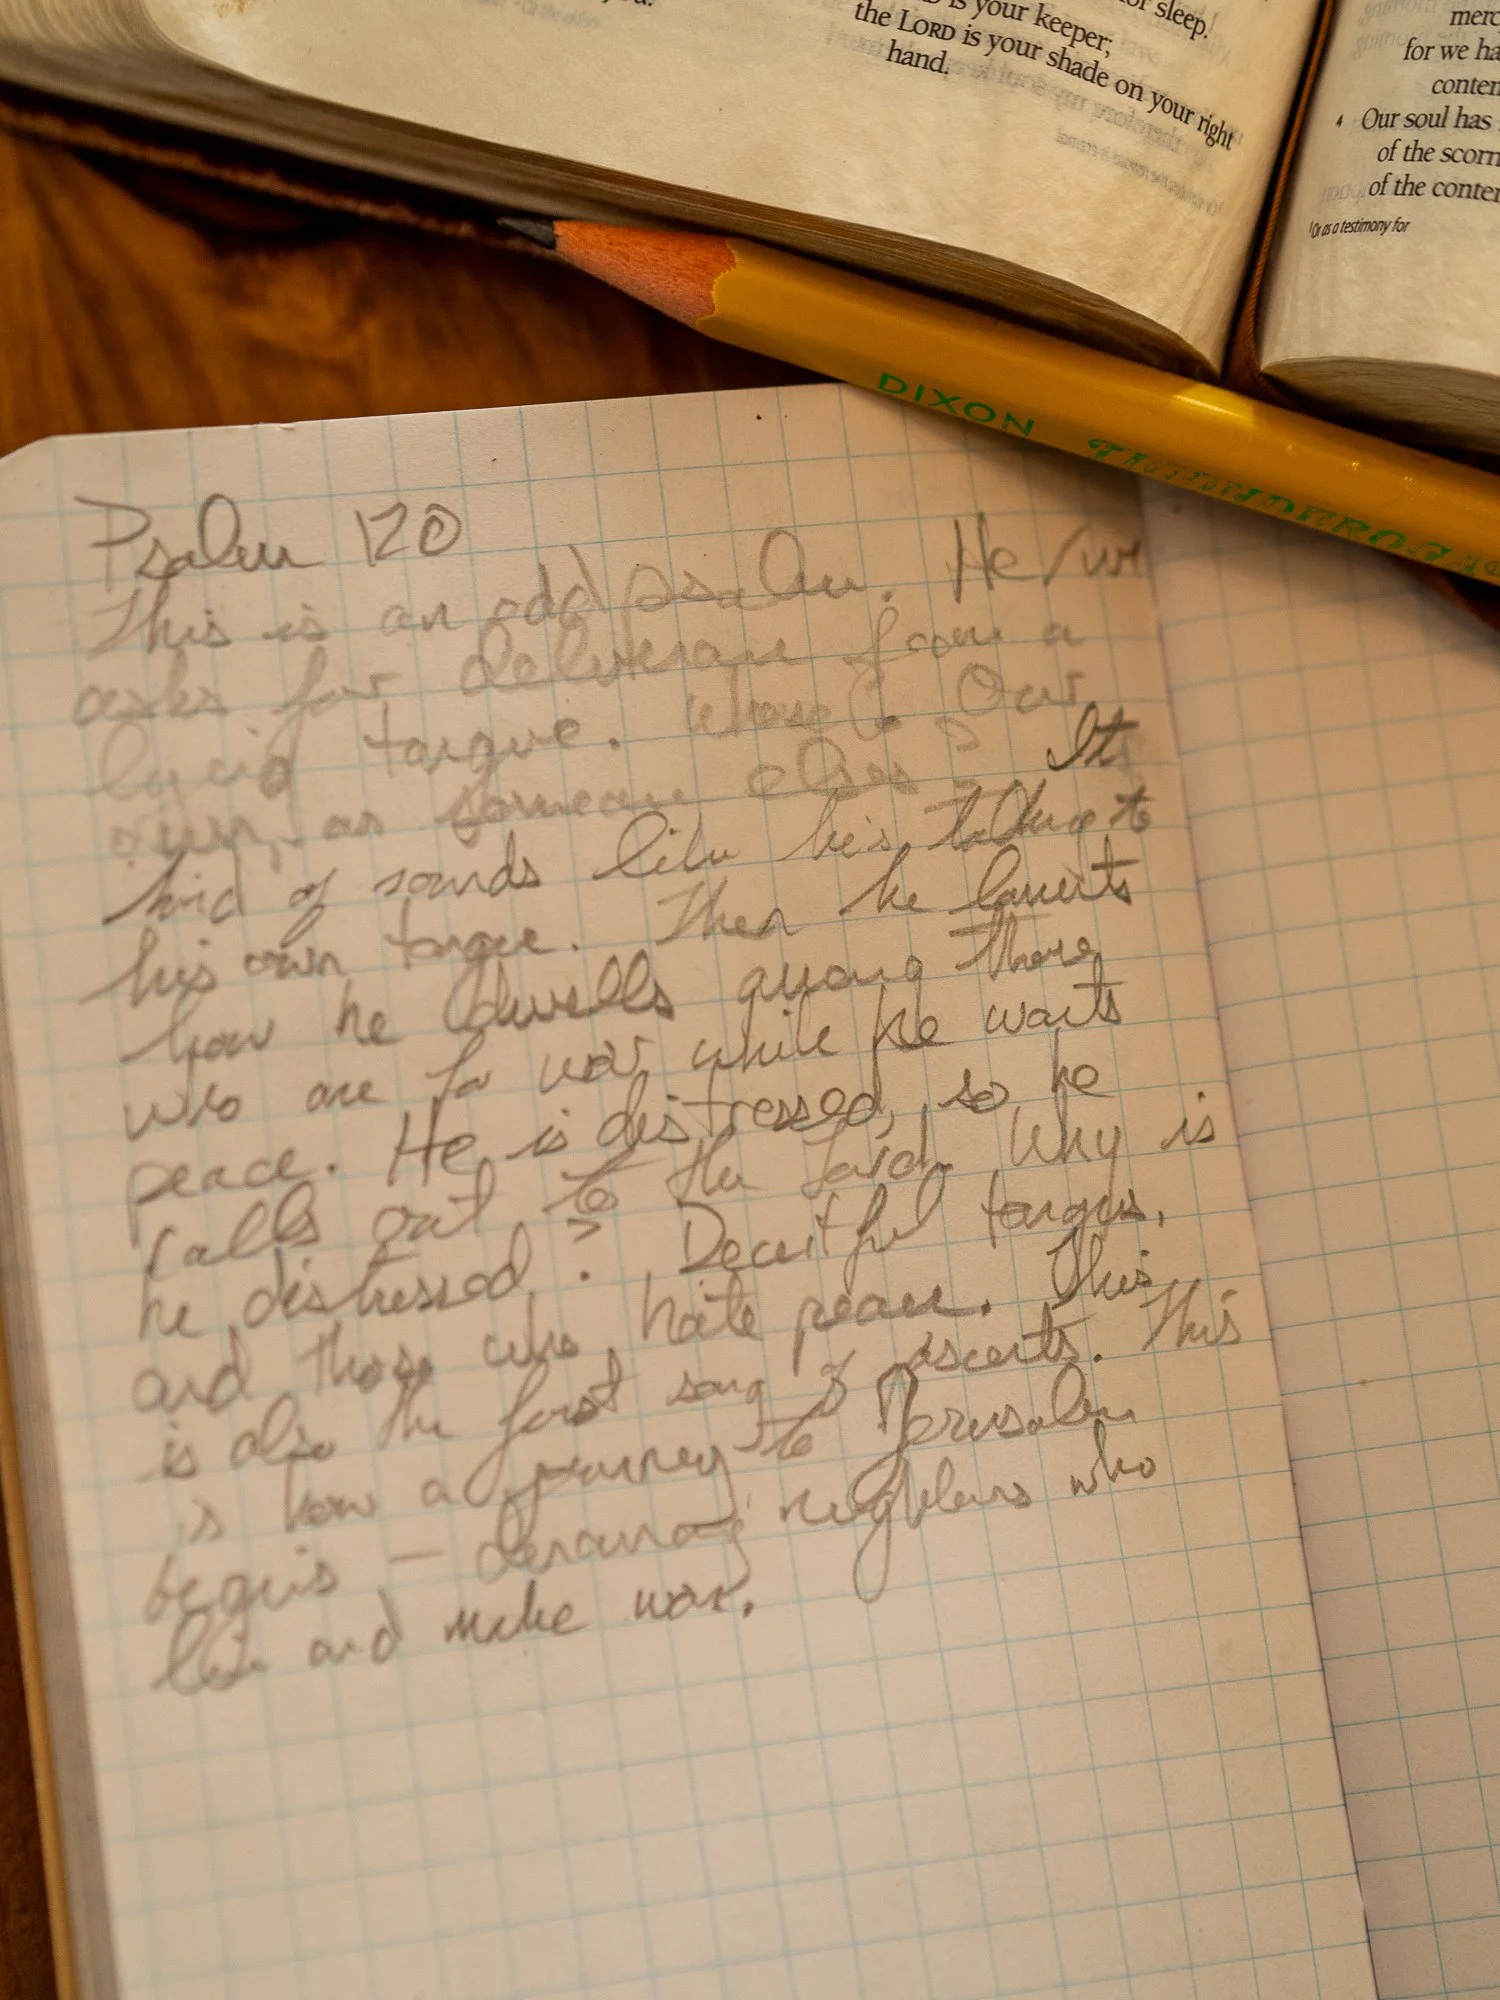 for sleep.
is your keeper;
the LORD is your shade on your right
hand.
merc
for we ha
conten
4 Our soul has
of the scorn
of the conten
Or as a testimony for
DIXON TICONDEROGA
Psalm 120
This is an odd psalm. He/we
asks for deliverance from a
lying tongue. Whose? Our
own, or someone elses? It
kind of sounds like he's talking to
his own tongue. Then he laments
how he dwells among those
who are for war while he wants
peace. He is distressed, so he
calls out to the Lord. Why is
he distressed? Deceitful tongues,
and those who hate peace. This
is also the first song of ascents. This
is how a journey to Jerusalem
begins — neighbors who
lie and make war.